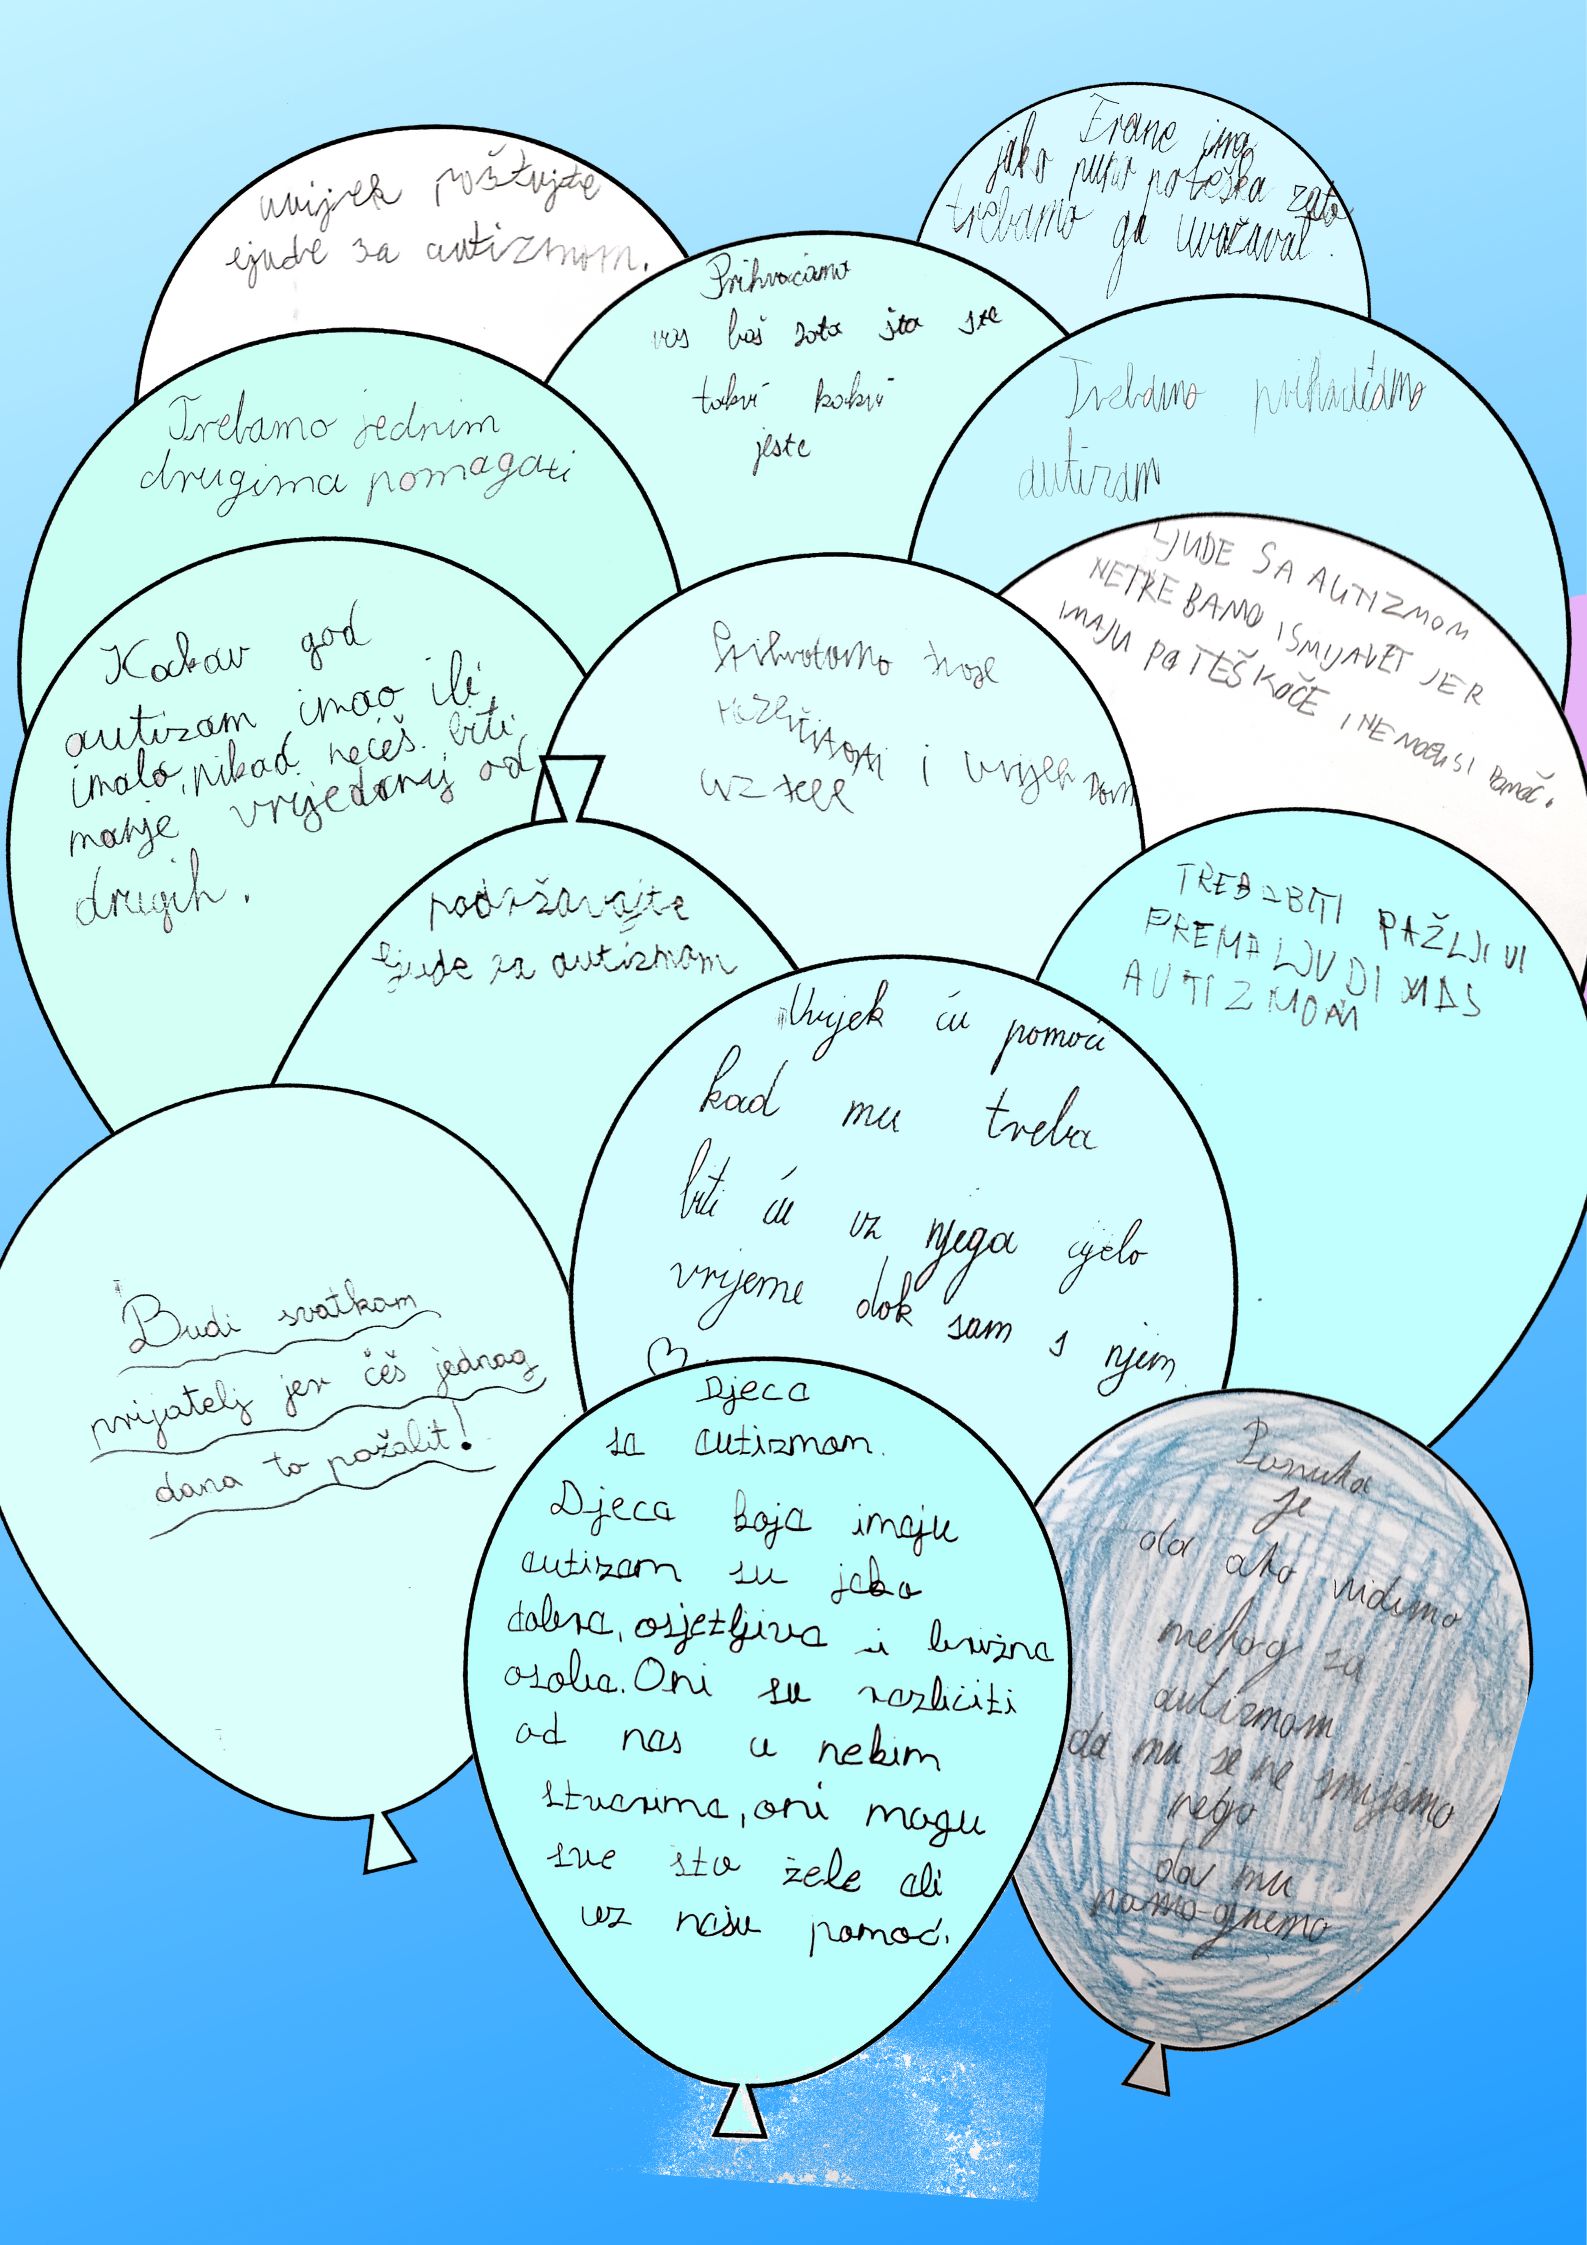 uvijek poštujte
ljude sa autizmom.
Frane ima
jako puno poteška zato
trebamo ga uvažavat.
Prihvaćamo
vas baš zato šta ste
takvi kakvi
jeste
Trebamo jednim
drugima pomagati
Trebamo prihvaćamo
autizam
LJUDE SA AUTIZMOM
NETREBAMO ISMIJAVET JER
IMAJU POTEŠKOČE I NE MOGU SI POMOČ.
Kakav god
autizam imao ili
imala, nikad nećeš biti
manje vrijedanij od
drugih.
tvoje
i uvijek
uz tebe
podržavajte
ljude sa autizmom
TREBA BITI PAŽLJIVI
PREMA LJUDIMA S
AUTIZMOM
Uvijek ću pomoći
kad mu treba
biti ću uz njega cijelo
vrijeme dok sam s njim
Budi svatkam
prijatelj jer ćeš jednag
dana to požalit!
Djeca
sa autizmom.
Djeca koja imaju
autizam su jako
dobra, osjetljiva i brižna
osoba. Oni su različiti
od nas u nekim
stvarima, oni mogu
sve sta žele ali
uz našu pomoć.
Poruka
je
da ako vidimo
nekog sa
autizmom
da mu se ne smijemo
nego
da mu
pomognemo